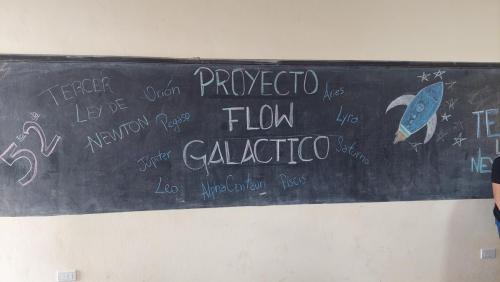 52
TERCER
LEY DE
NEWTON
Orión
Pegaso
Júpiter
Leo
PROYECTO
FLOW
GALACTICO
Alpha Centauri
Piscis
Aries
Lyra
Saturno
TE
NE